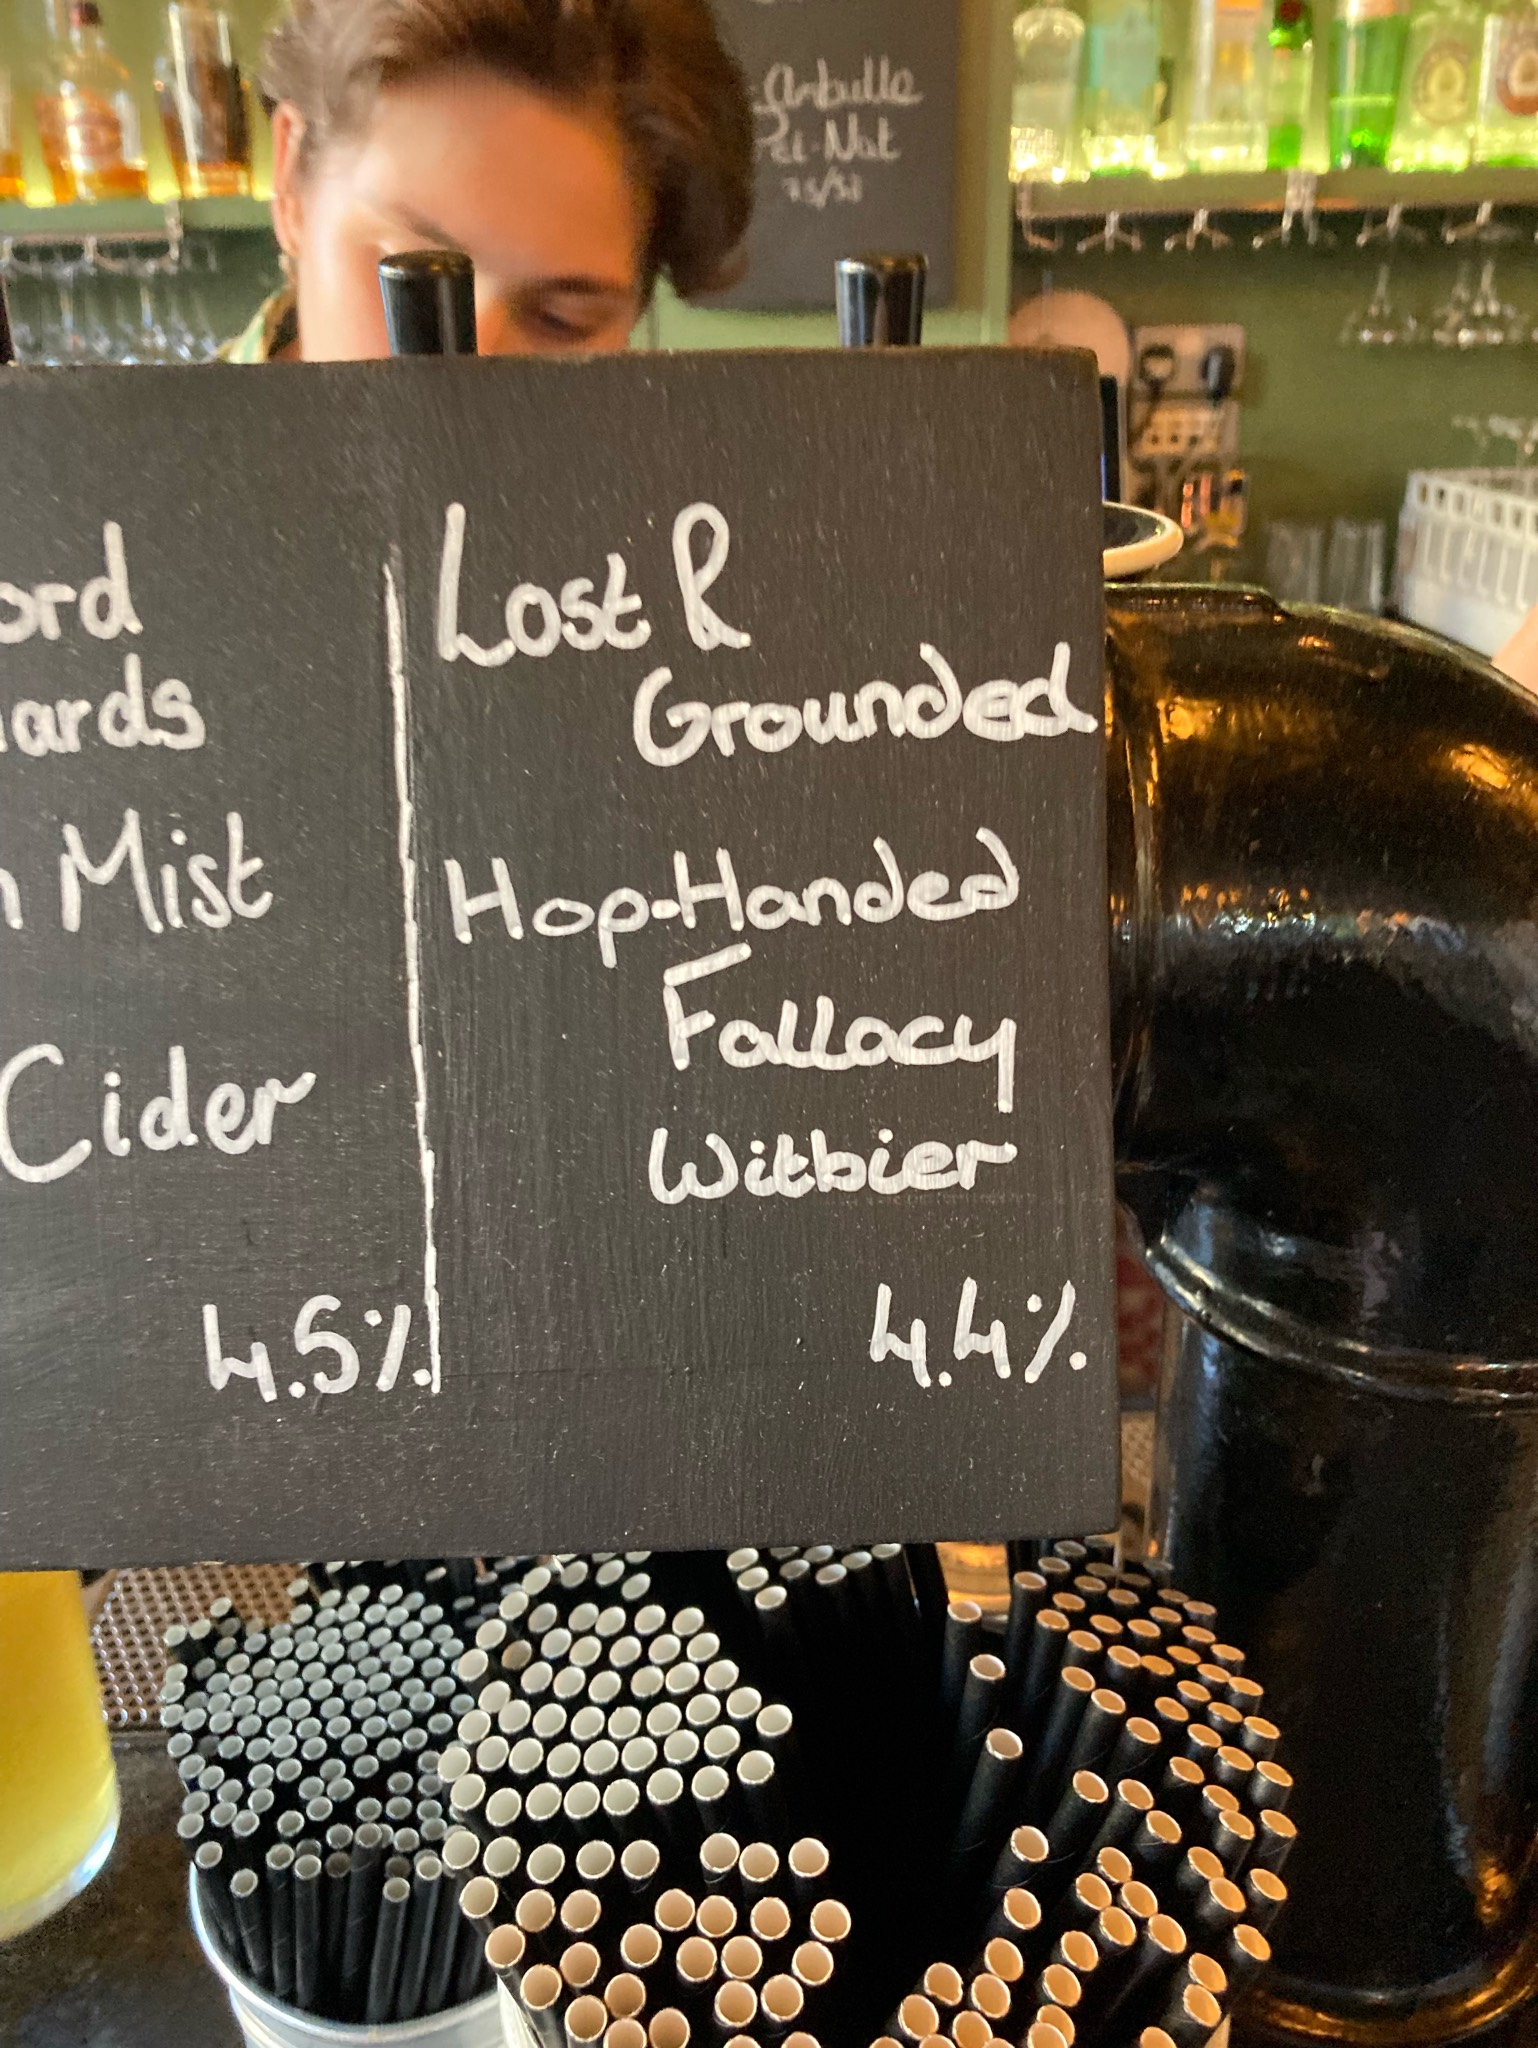 Arbulle
Pet-Nat
ord
ards
Mist
Cider
4.5%
Lost &
Grounded
Hop-Handed
Fallacy
Witbier
4.4%.